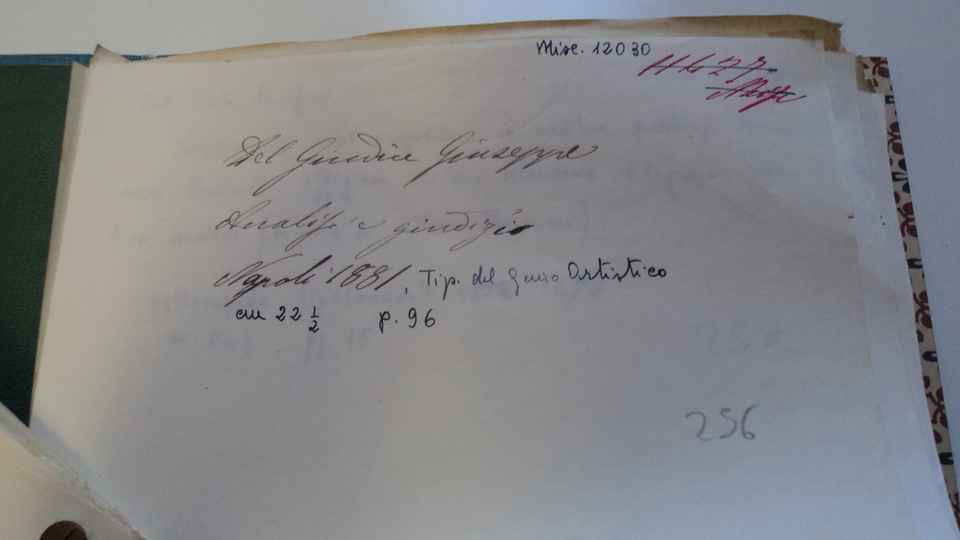 Misc. 12030
Del Giudice Giuseppe
Analisi e giudizio
Napoli 1881, Tip. del Genio Artistico
cm 22 1/2 p. 96
256